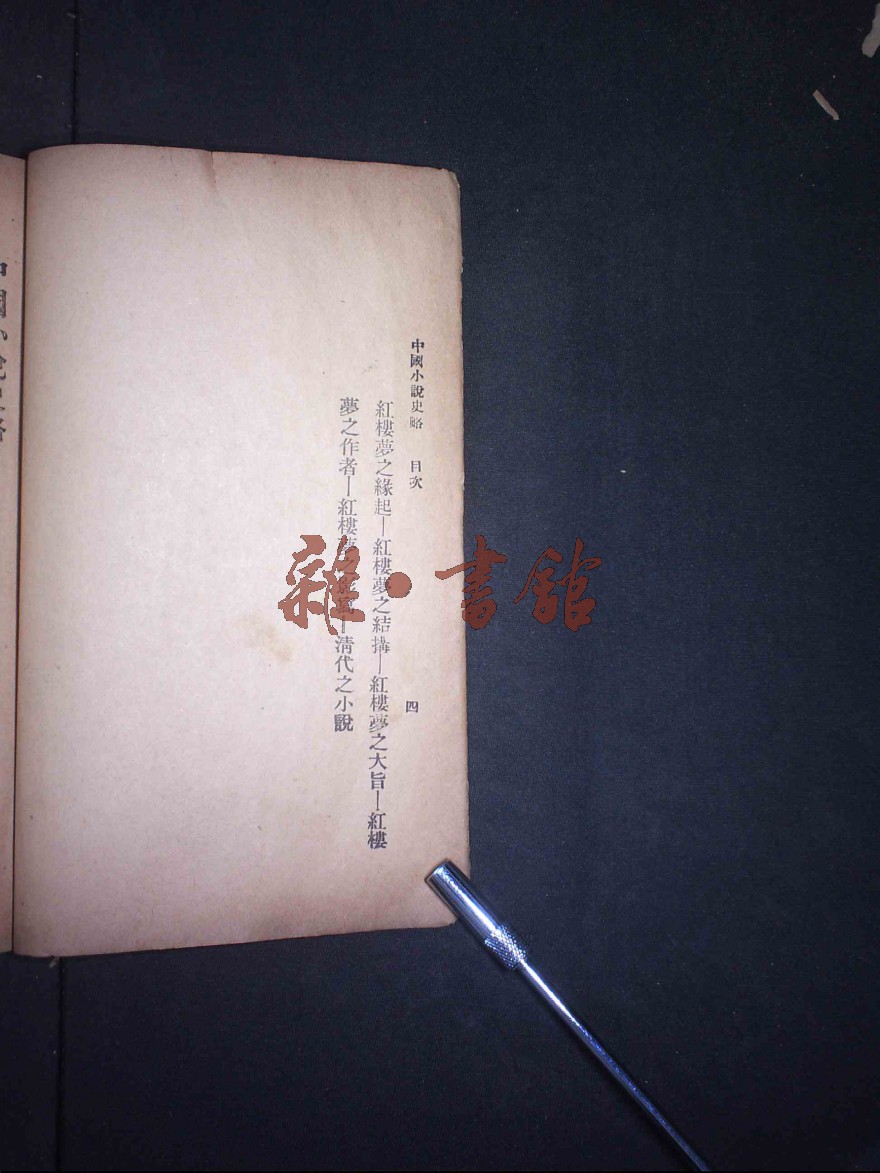 中國小說史略 目次
四
紅樓夢之緣起—紅樓夢之結構—紅樓夢之大旨—紅樓
夢之作者—紅樓夢之 —清代之小說
雜·書館
中國小說史略